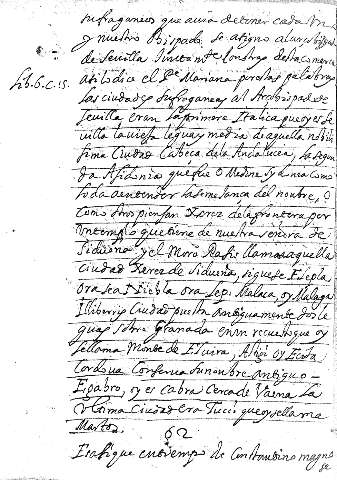 sufraganeos que avia de tener cada un
y nuestro Obispado se asigno al arzobispado
de Sevilla
asi lo dice el Pe. Mariana por estas palabras
Lib. 6. C. 15.
las ciudades sufraganeas al Arzobispado de
Sevilla eran la primera Italica que oy es Se
villa la vieja legua y media de aquella nobilis
sima Ciudad Cabeca de la Andalucia, la segun
da Asidonia que fue o Medina Sydonia como
se da a entender la semejanca del nombre, o
como otros piensan Xerez de la frontera por
un templo que tiene de nuestra señora de
Sidueña y el Moro Rasis llama aquella
Ciudad Xerez de Sidueña, siguese Elepla
ora sea Niebla ora Lepe Malaca, oy Malaga
Illiberris Ciudad puesta antiguamente dos le
guas sobre Granada en un recuesto que oy
se llama Monte de Elvira, Astigi oy Ecija
Cordova Conserva su nombre antiguo
Egabro, oy es cabra cerca de Vaena La
Ultima Ciudad era Tucci que oy se llama
Martos.
62
Esto fue en tiempo de Constantino magno
se